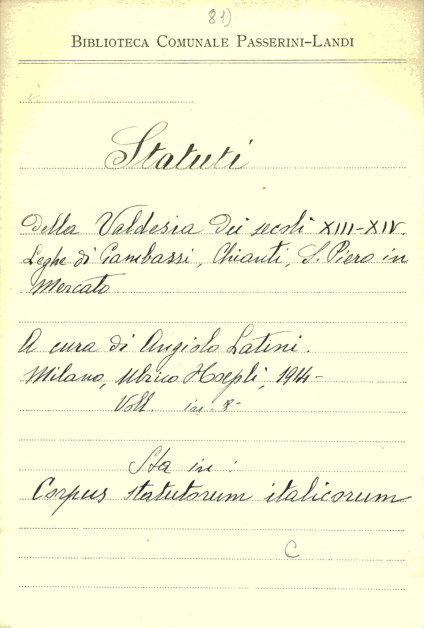 81)
BIBLIOTECA COMUNALE PASSERINI-LANDI
Statuti
Della Valdesia Dei secoli XIII-XIV.
Leghe di Gambassi, Chianti, S. Piero in
Mercato
A cura di Angiolo Latini.
Milano, Ulrico Hoepli, 1914-
Voll. in-8-
Sta in:
Corpus statutorum italicorum
C